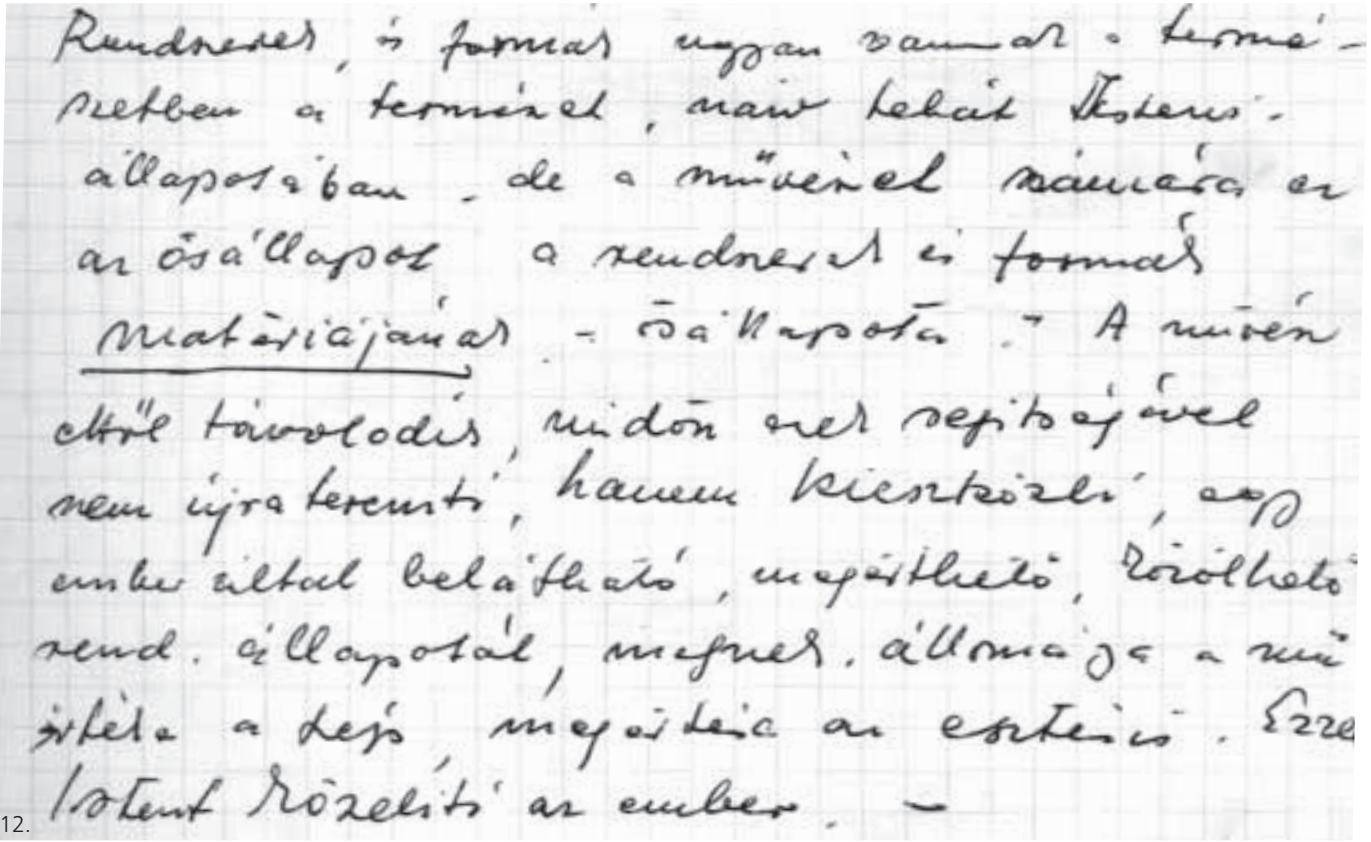 Rendszerek, és formák ugyan vannak a termé-
szetben a természet, naiv tehát Isteni-
állapotában - de a művészet számára ez
az ősállapot a rendszerek és formák
matériájának - ősállapota - A művész
ettől távolodik, midőn ezek segítségével
nem újrateremti, hanem kieszközli, egy
ember által belátható, megérthető, közölhető
rend. állapotát, melynek. állomása a mű
értéke a kép, megértése az esztézis. Ezze
Istent közelíti az ember. -
12.